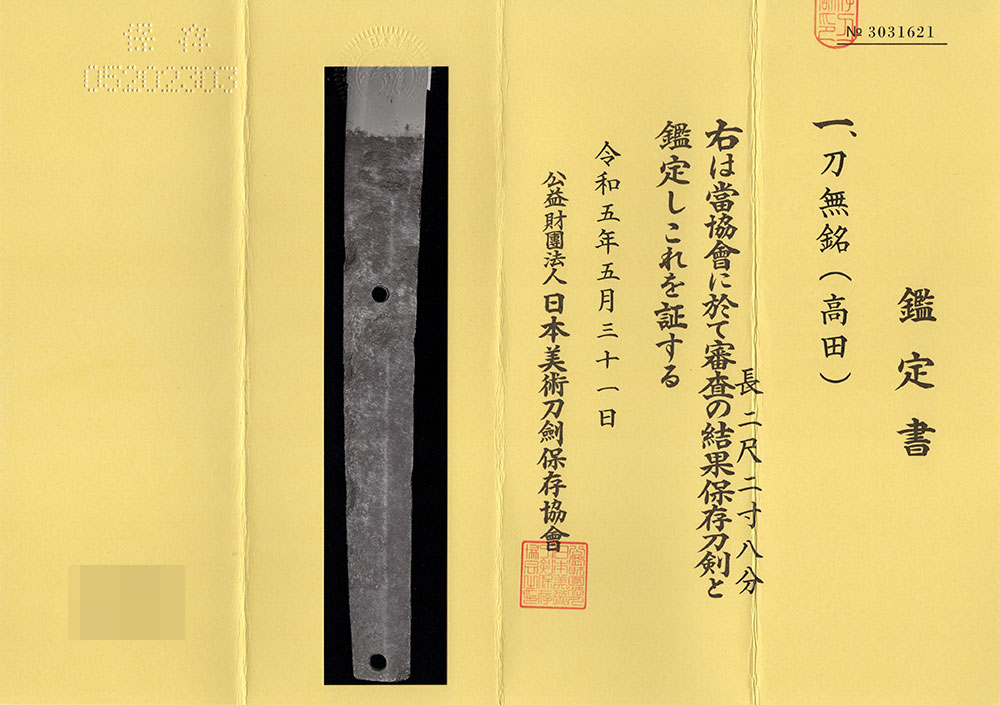 № 3031621
鑑定書
一、刀無銘（高田）
長二尺二寸八分
右は當協會に於て審査の結果保存刀剣と
鑑定しこれを証する
令和五年五月三十一日
公益財團法人日本美術刀劍保存協會
保存
05202303